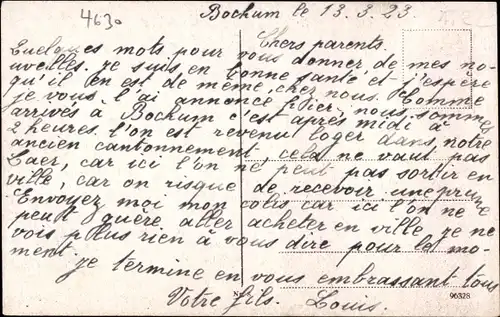 4630
Bochum le 13.3.23
Chers parents.
Quelques mots pour vous donner de mes no-
uvelles. je suis en bonne santé et j'espère
qu'il en est de même chez nous. Comme
je vous l'ai annoncé hier, nous sommes
arrivés à Bochum c'est après midi à
2 heures. l'on est revenu loger dans notre
ancien cantonnement, cela ne vaut pas
Laer, car ici l'on ne peut pas sortir en
ville, car on risque de recevoir une prune
Envoyez moi mon colis car ici l'on ne
peut guère aller acheter en ville je ne
vois plus rien à vous dire pour le mo-
ment.
je termine en vous embrassant tous
Votre fils. Louis.
96328